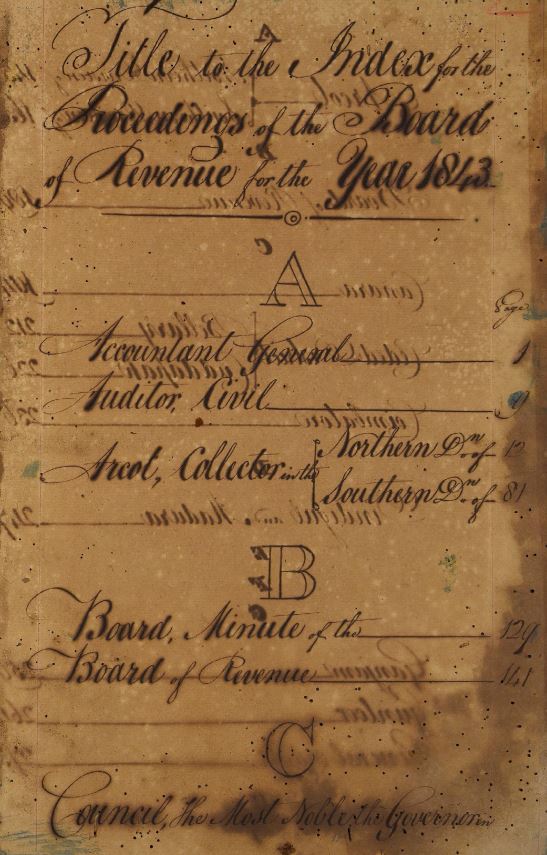 Title to the Index for the
Proceedings of the Board
of Revenue for the Year 1843.
A
Page
Accountant General 1
Auditor, Civil 9
Arcot, Collector in the Northern Dn. of 12
Southern Dn. of 81
B
Board, Minute of the 129
Board of Revenue 141
C
Council, The Most Noble the Governor in